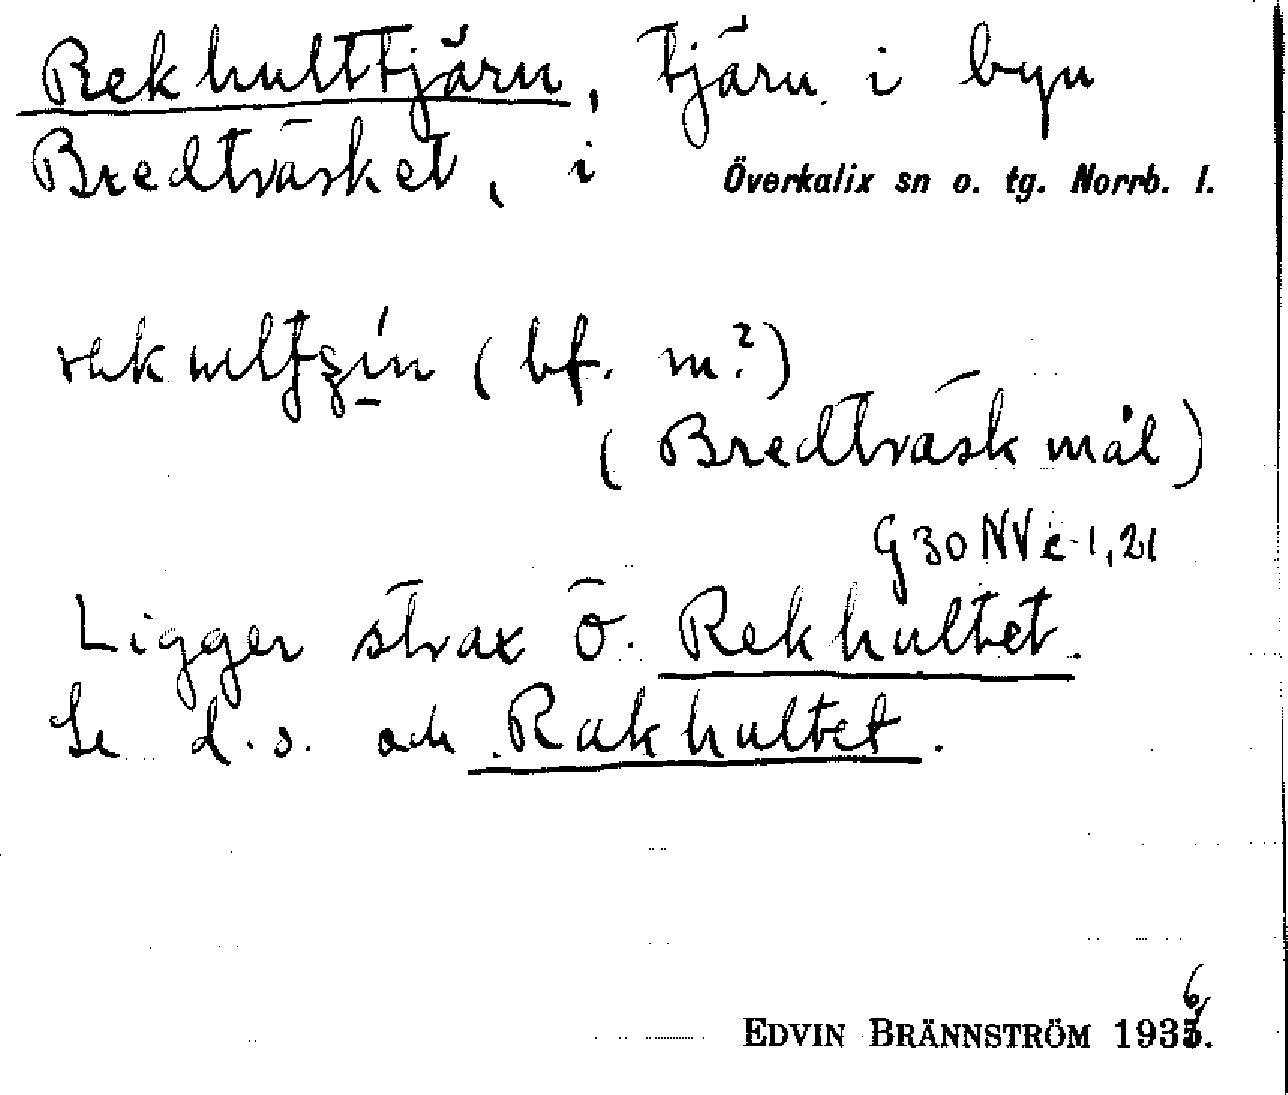 Rekhulttjärn, tjärn i byn
Bredträsket, i Överkalix sn o. tg. Norrb. l.
(bf. m?)
(Bredträskmål)
G30 NV c 1,21
Ligger strax ö. Rekhultet.
Se d.o. och Rakhultet.
EDVIN BRÄNNSTRÖM 1936.